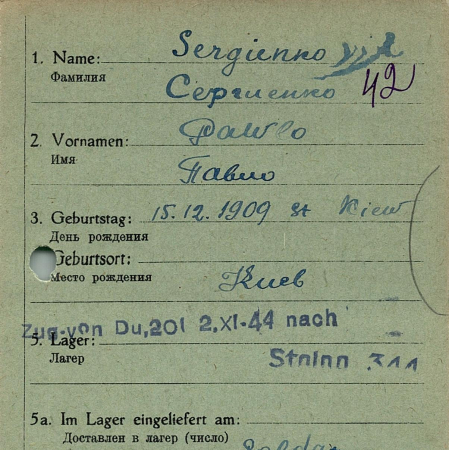 1. Name: Sergienko
Фамилия Сергиенко 42
2. Vornamen: Pawlo
Имя Павло
3. Geburtstag: 15.12.1909 st Kiew
День рождения
Geburtsort:
Место рождения Киев
Zug von Du, 201 2.XI-44 nach
5. Lager:
Лагер
5a. Im Lager eingeliefert am:
Доставлен в лагер (число)